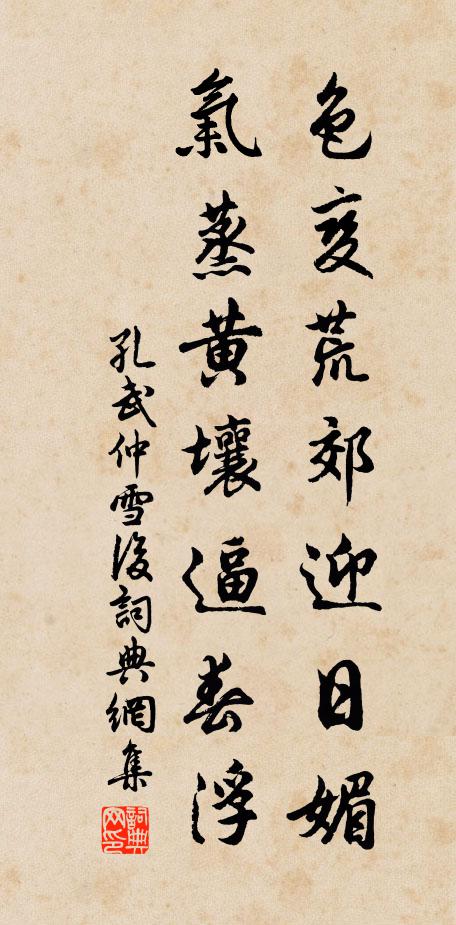 色变荒郊迎日媚
氣蒸黄壤逼春浮
孔武仲雪後詞典網集
詞典網印